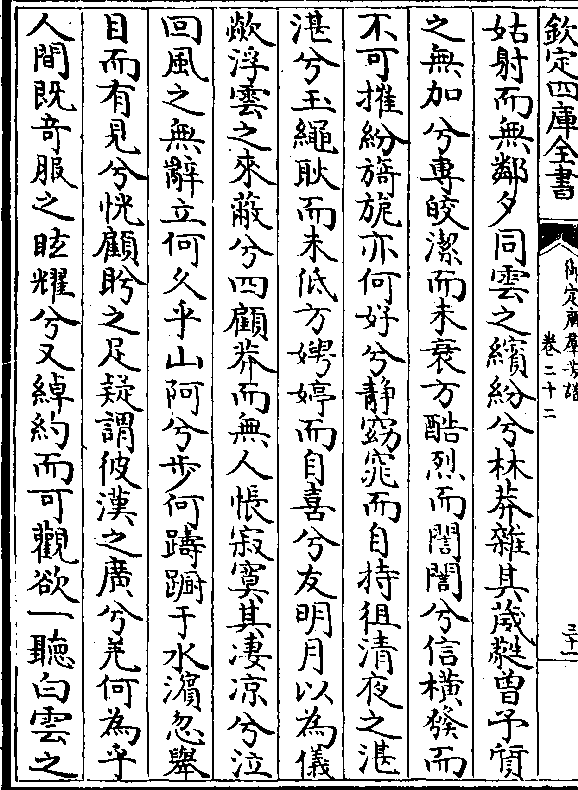 欽定四庫全書
御定廣羣芳譜
卷二十二
三十一
姑射而無鄰夕同雲之繽紛兮林莽雜其葳蕤曽予質
之無加兮專皎潔而未衰方酷烈而誾誾兮信橫發而
不可摧紛旖旎亦何好兮静窈窕而自持徂清夜之湛
湛兮玉繩耿而未低方娉婷而自喜兮友明月以為儀
歘浮雲之來蔽兮四顧莽而無人悵寂寞其凄凉兮泣
回風之無辭立何久乎山阿兮步何躊蹰于水濱忽舉
目而有見兮恍顧盻之足疑謂彼漢之廣兮羌何為乎
人間既竒服之眩耀兮又綽約而可觀欲一聽白雲之